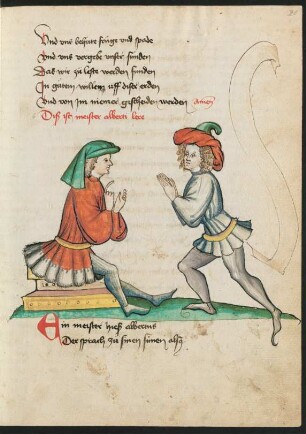 Vnd vns behüte fruge vnd spade
Vnd vns vergebe vnser sunden
Das wir zu leste werden funden
In gutem willen uff diser erden
Vnd von im niemer gescheiden werden amen
Diß ist meister alberti lere
Ein meister hieß albertus
Der sprach zu sinen sünen alsus